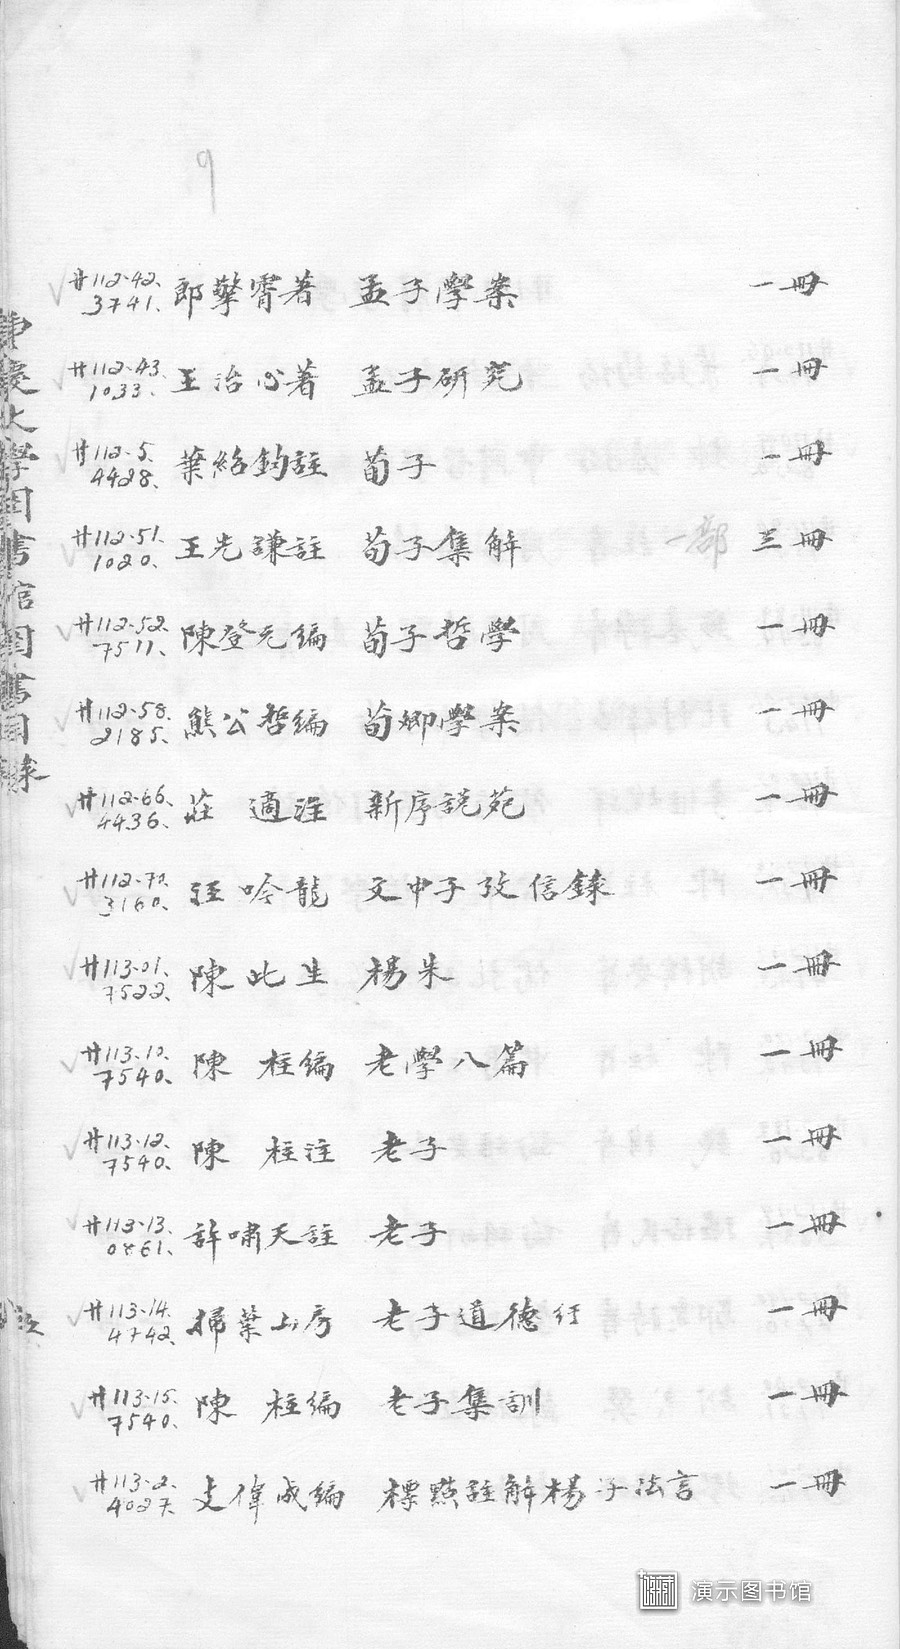 9
廿112·42. 郎擎霄著 孟子學案 一冊
3741.
廿112·43. 王治心著 孟子研究 一冊
1033.
廿112·5. 葉紹鈞註 荀子 一冊
4428.
廿112·51. 王先謙註 荀子集解 一部 三冊
1020.
廿112·52. 陳登元編 荀子哲學 一冊
7511.
廿112·58. 熊公哲編 荀卿學案 一冊
2185.
廿112·66. 莊適註 新序説苑 一冊
4436.
廿112·70. 汪吟龍 文中子攷信錄 一冊
3160.
廿113·01. 陳此生 楊朱 一冊
7522.
廿113·10. 陳柱編 老學八篇 一冊
7540.
廿113·12. 陳柱注 老子 一冊
7540.
廿113·13. 許嘯天註 老子 一冊
0861.
廿113·14. 掃葉山房 老子道德経 一冊
4742.
廿113·15. 陳柱編 老子集訓 一冊
7540.
廿113·2. 支偉成編 標點註解楊子法言 一冊
4027.
重慶大學圖書館圖書目錄
演示图书馆